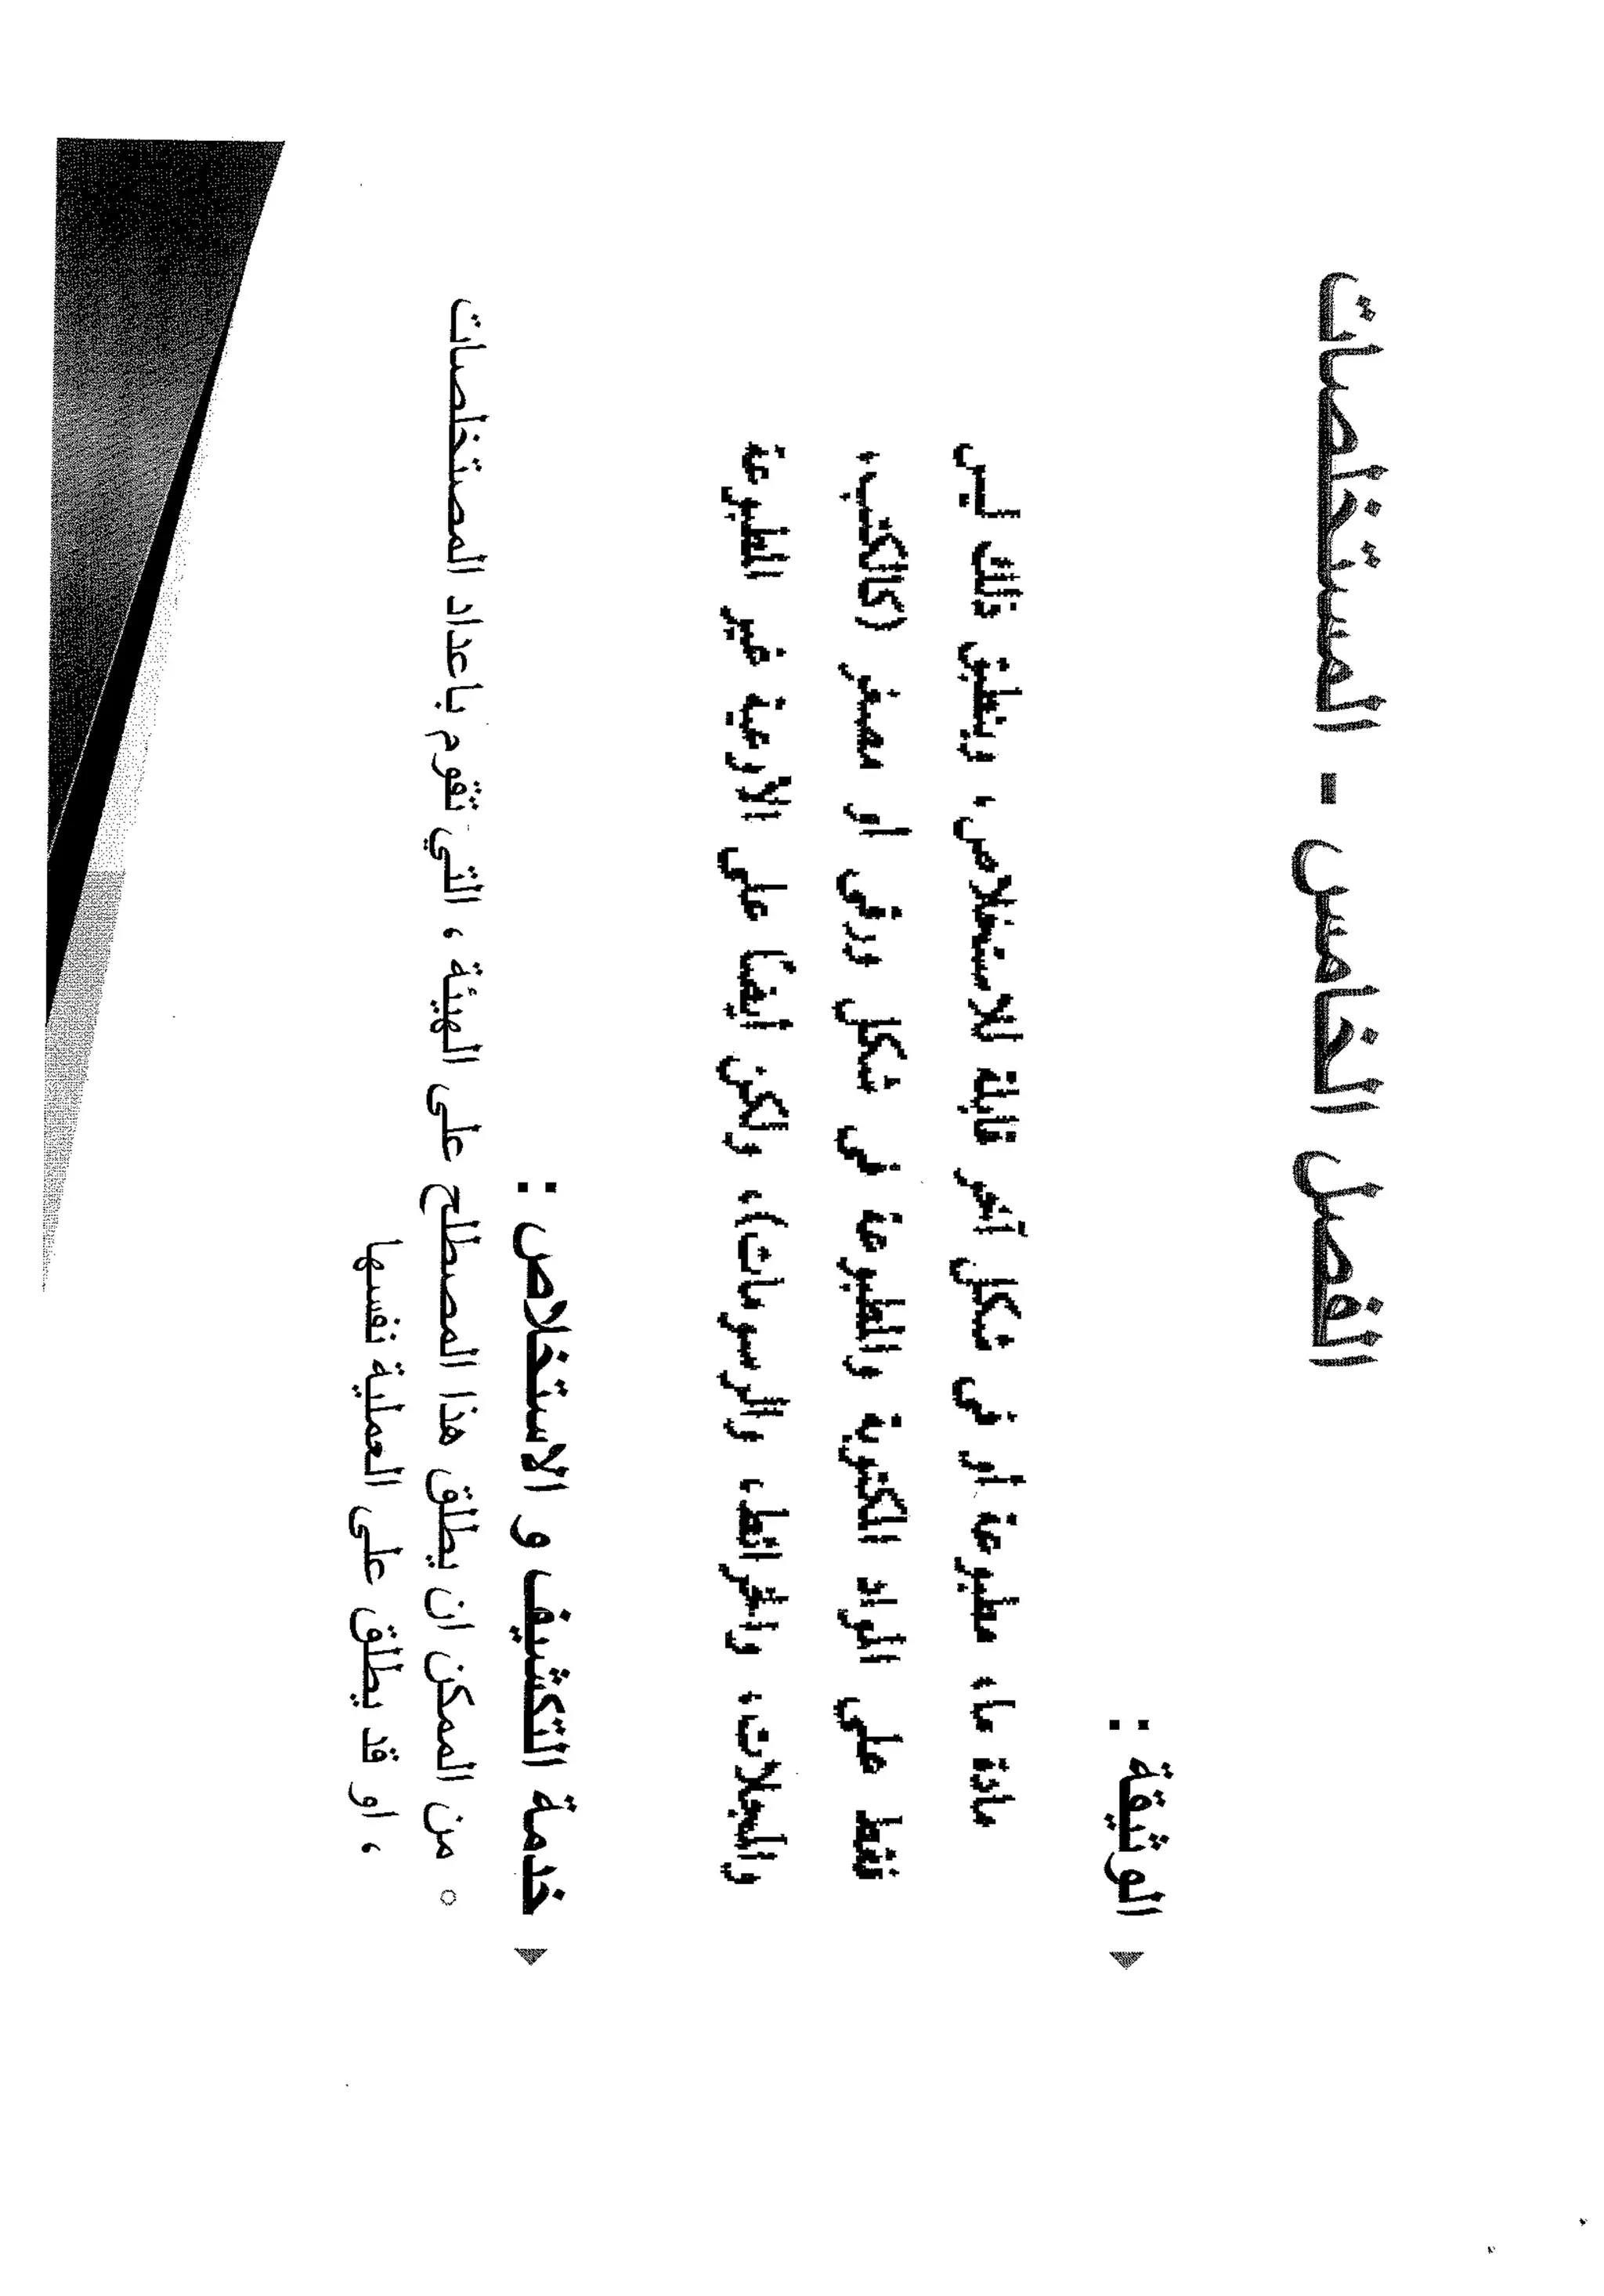 الفصل الخامس - المستخلصات
الوثيقة :
مادة ما، مطبوعة أو فى شكل آخر قابلة للاستخلاص، وينطبق ذلك ليس
فقط على المواد المكتوبة والمطبوعة فى شكل ورقى أو مصغر (كالكتب،
والمجلات، والخرائط، والرسومات)، ولكن أيضًا على الأوعية غير المطبوعة
خدمة التكشيف و الاستخلاص :
من الممكن ان يطلق هذا المصطلح على الهيئة ، التي تقوم باعداد المصتخلصات
، او قد يطلق على العملية نفسها